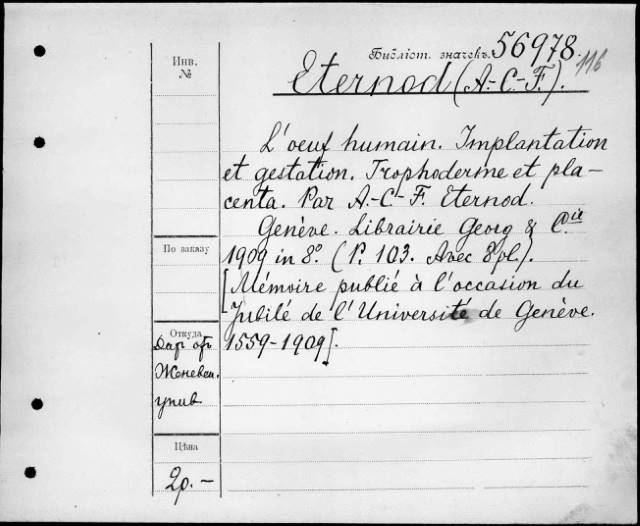 Инв.
№
Библіот. значекъ 56978.
116
Eternod (A.-C.-F.).
L'oeuf humain. Implantation
et gestation. Trophoderme et pla-
centa. Par A.-C.-F. Eternod.
Genève. Librairie Georg & Cie
По заказу
1909 in 8°. (P. 103. Avec 8 pl.).
[Mémoire publié à l'occasion du
Jubilé de l'Université de Genève.
Откуда
1559-1909].
Дар от
Женевск.
унив.
Цѣна
2р. —